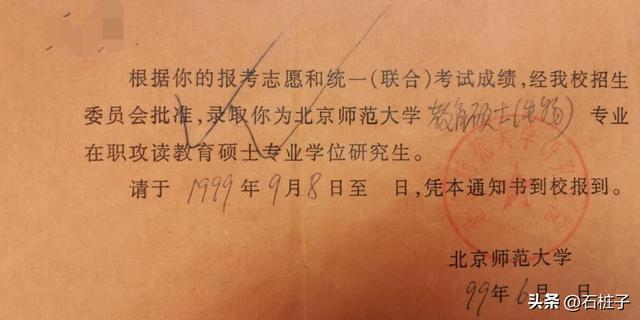 根据你的报考志愿和统一(联合)考试成绩,经我校招生
委员会批准,录取你为北京师范大学 教育硕士(生物) 专业
在职攻读教育硕士专业学位研究生。
请于 1999 年 9 月 8 日至 日,凭本通知书到校报到。
北京师范大学
99 年 6 月 日
头条 @石桩子